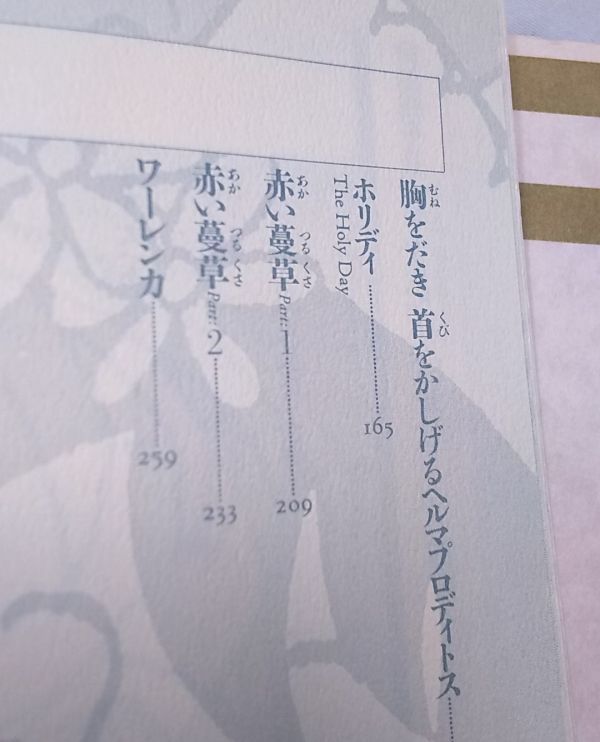 胸をだき 首をかしげるヘルマプロディトス
ホリディ
The Holy Day
165
赤い蔓草 Part: 1 209
赤い蔓草 Part: 2 233
ワーレンカ 259